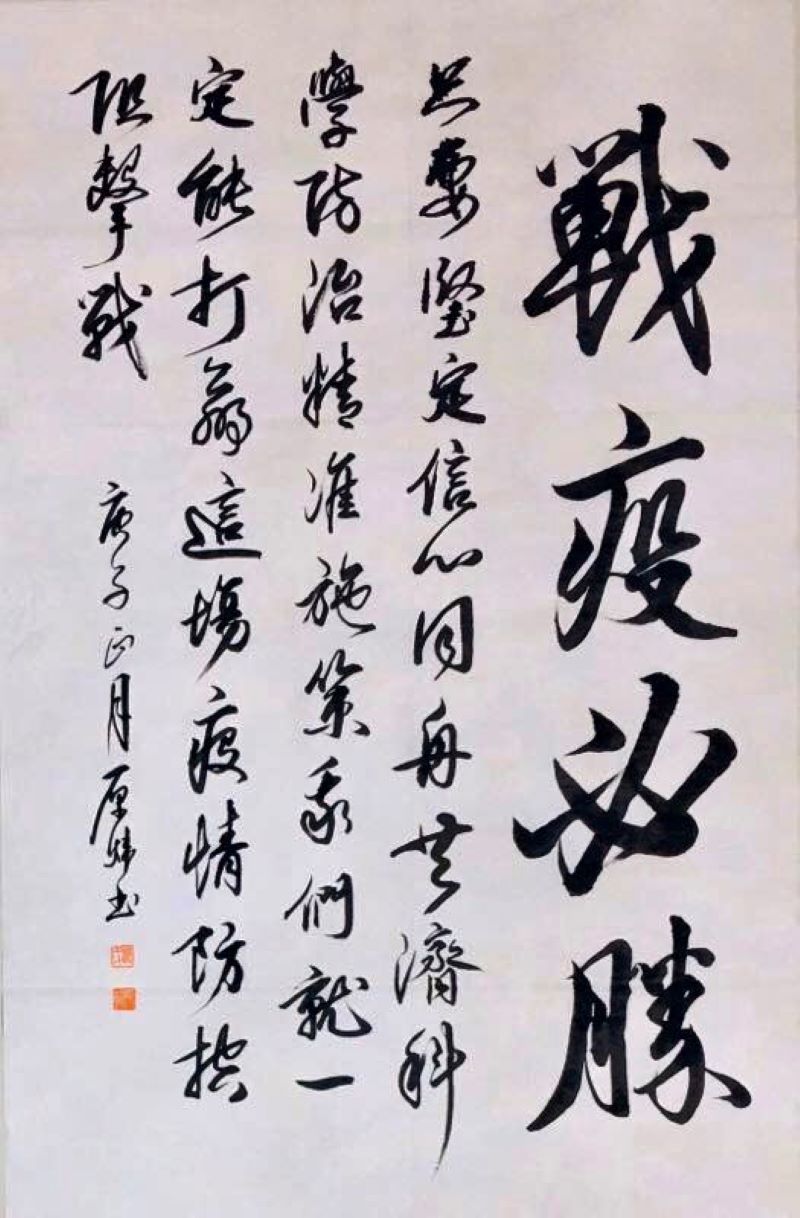 戰疫必勝
只要堅定信心同舟共濟科
學防治精准施策我們就一
定能打贏這場疫情防控
阻擊戰
庚子正月原煒書